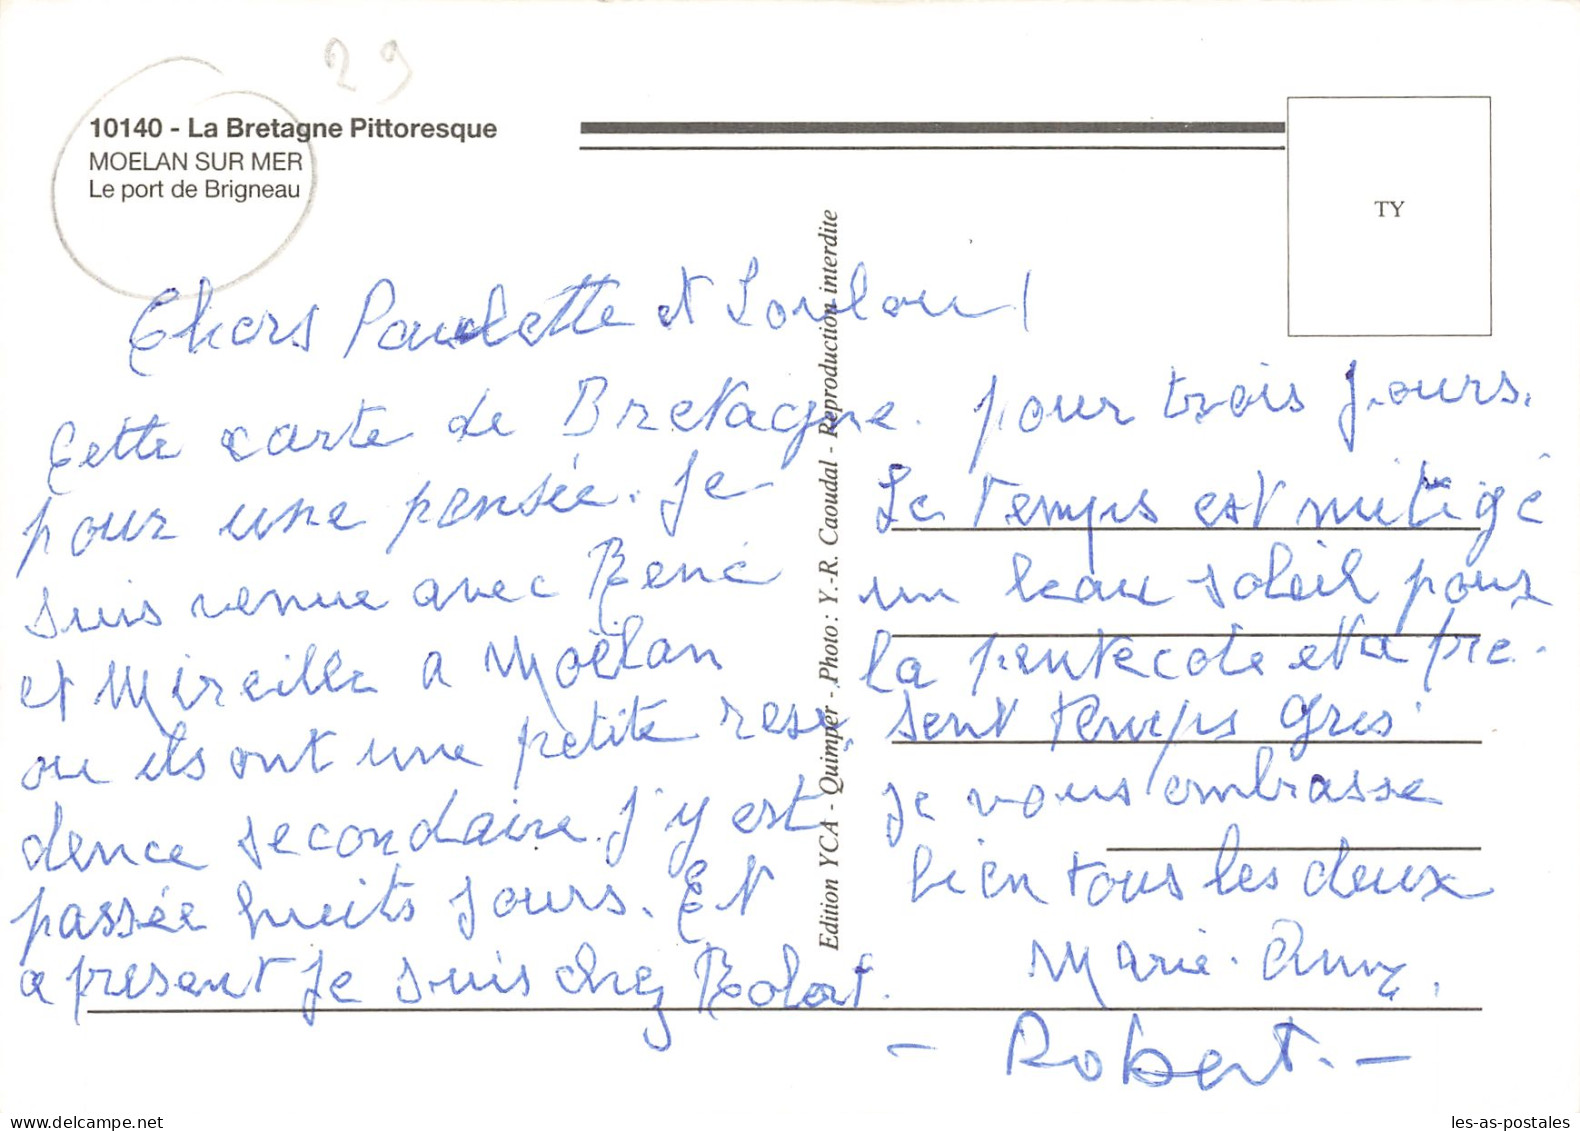 29
10140 - La Bretagne Pittoresque
MOELAN SUR MER
Le port de Brigneau
TY
Chers Paulette et Loulou!
Cette carte de Bretagne.
pour une pensée. Je
suis venue avec René
et Mireille a Moëlan
ou ils ont une petite resi
dence secondaire. J'y est
passée huits jours. Et
a present je suis chez Robert.
pour trois jours.
Le temps est mitigé
un beau soleil pour
la pentecote et a pre-
sent temps gris.
Je vous embrasse
bien tous les deux
Marie-Anne.
- Robert. -
Edition YCA - Quimper - Photo : Y.-R. Caoudal - Reproduction interdite
les-as-postales
www.delcampe.net